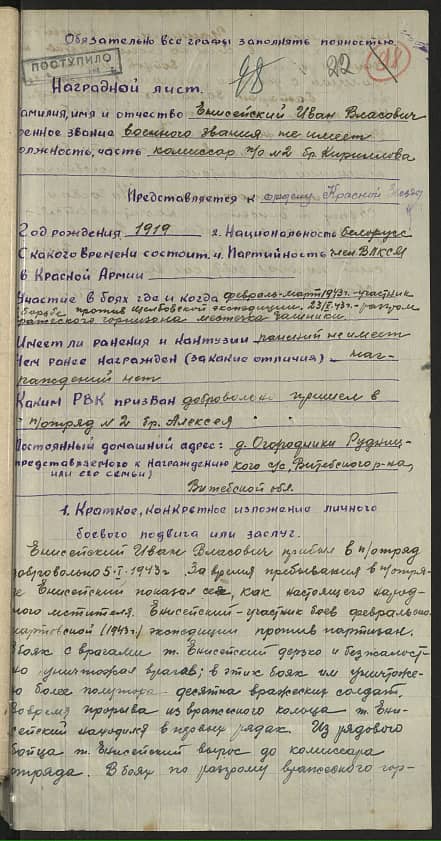 Обязательно все графы заполнять полностью.
ПОСТУПИЛО
98 22 98
Наградной лист.
амилия, имя и отчество Енисейский Иван Власович
оенное звание военного звания не имеет
олжность, часть комиссар п/о №2 бр. Кириллова
Представляется к ордену Красной Звезды
Год рождения 1919 2. Национальность белорус
С какого времени состоит 4. Партийность член ВЛКСМ
в Красной Армии
Участие в боях где и когда февраль-март 1943г. участник
борьбе против экспедиции. 43г. - разгром
гарнизона местечка
Имеет ли ранения и контузии ранений не имеет
Чем ранее награжден (за какие отличия) наг-
раждений нет
Каким РВК призван добровольно пришел в
п/отряд №2 бр. Алексея
остоянный домашний адрес: д. Огородники Рудниц-
представляемого к награждению кого с/с, Витебского р-на,
или его семьи) Витебской обл.
1. Краткое, конкретное изложение личного
боевого подвига или заслуг.
Енисейский Иван Власович прибыл в п/отряд
добровольно 5-I-1943г. За время пребывания в п/отря-
е Енисейский показал себя, как настоящего народ-
ного мстителя. Енисейский - участник боев февральско-
мартовской (1943г.) экспедиции против партизан.
В боях с врагами т. Енисейский дерзко и безжалост-
но уничтожал врагов; в этих боях им уничтоже-
но более полутора десятка вражеских солдат.
Во время прорыва из вражеского кольца т. Ени-
сейский находился в первых рядах. Из рядового
бойца т. Енисейский вырос до комиссара
отряда. В боях по разгрому вражеского гар-